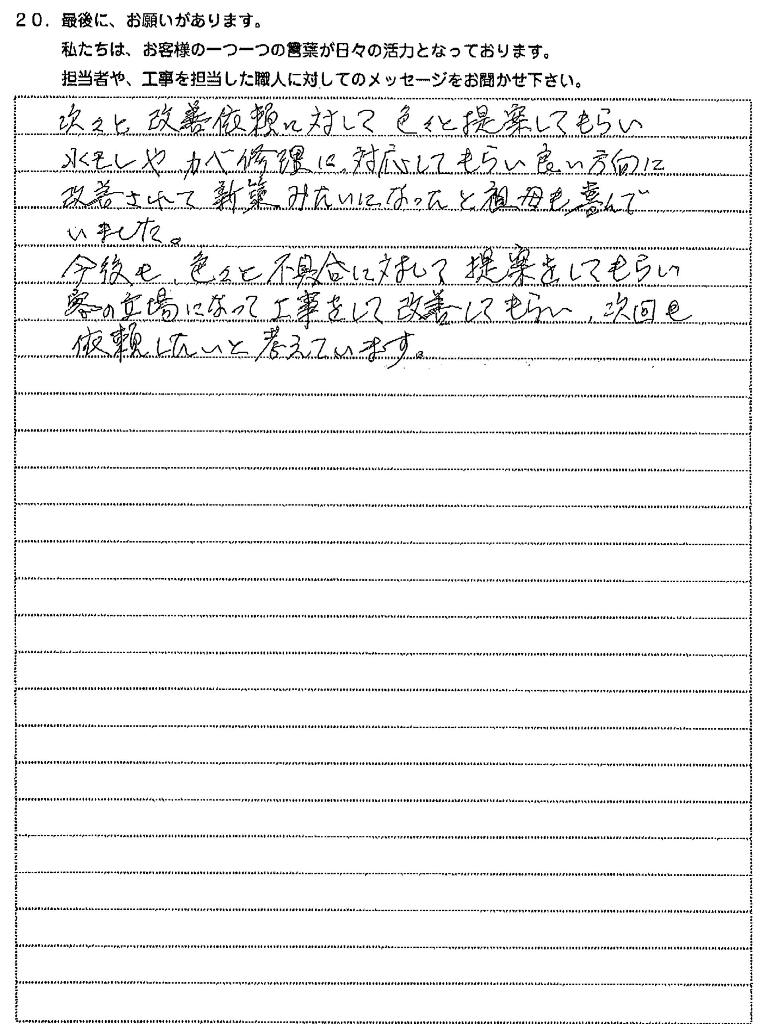 20．最後に、お願いがあります。
私たちは、お客様の一つ一つの言葉が日々の活力となっております。
担当者や、工事を担当した職人に対してのメッセージをお聞かせ下さい。
次々と改善依頼に対して色々と提案してもらい
水モレや、カベ修理に、対応してもらい良い方向に
改善されて新築みたいになったと、祖母も喜んで
いました。
今後も、色々と不具合に対して提案をしてもらい
客の立場になって工事をして改善してもらい、次回も
依頼したいと考えています。